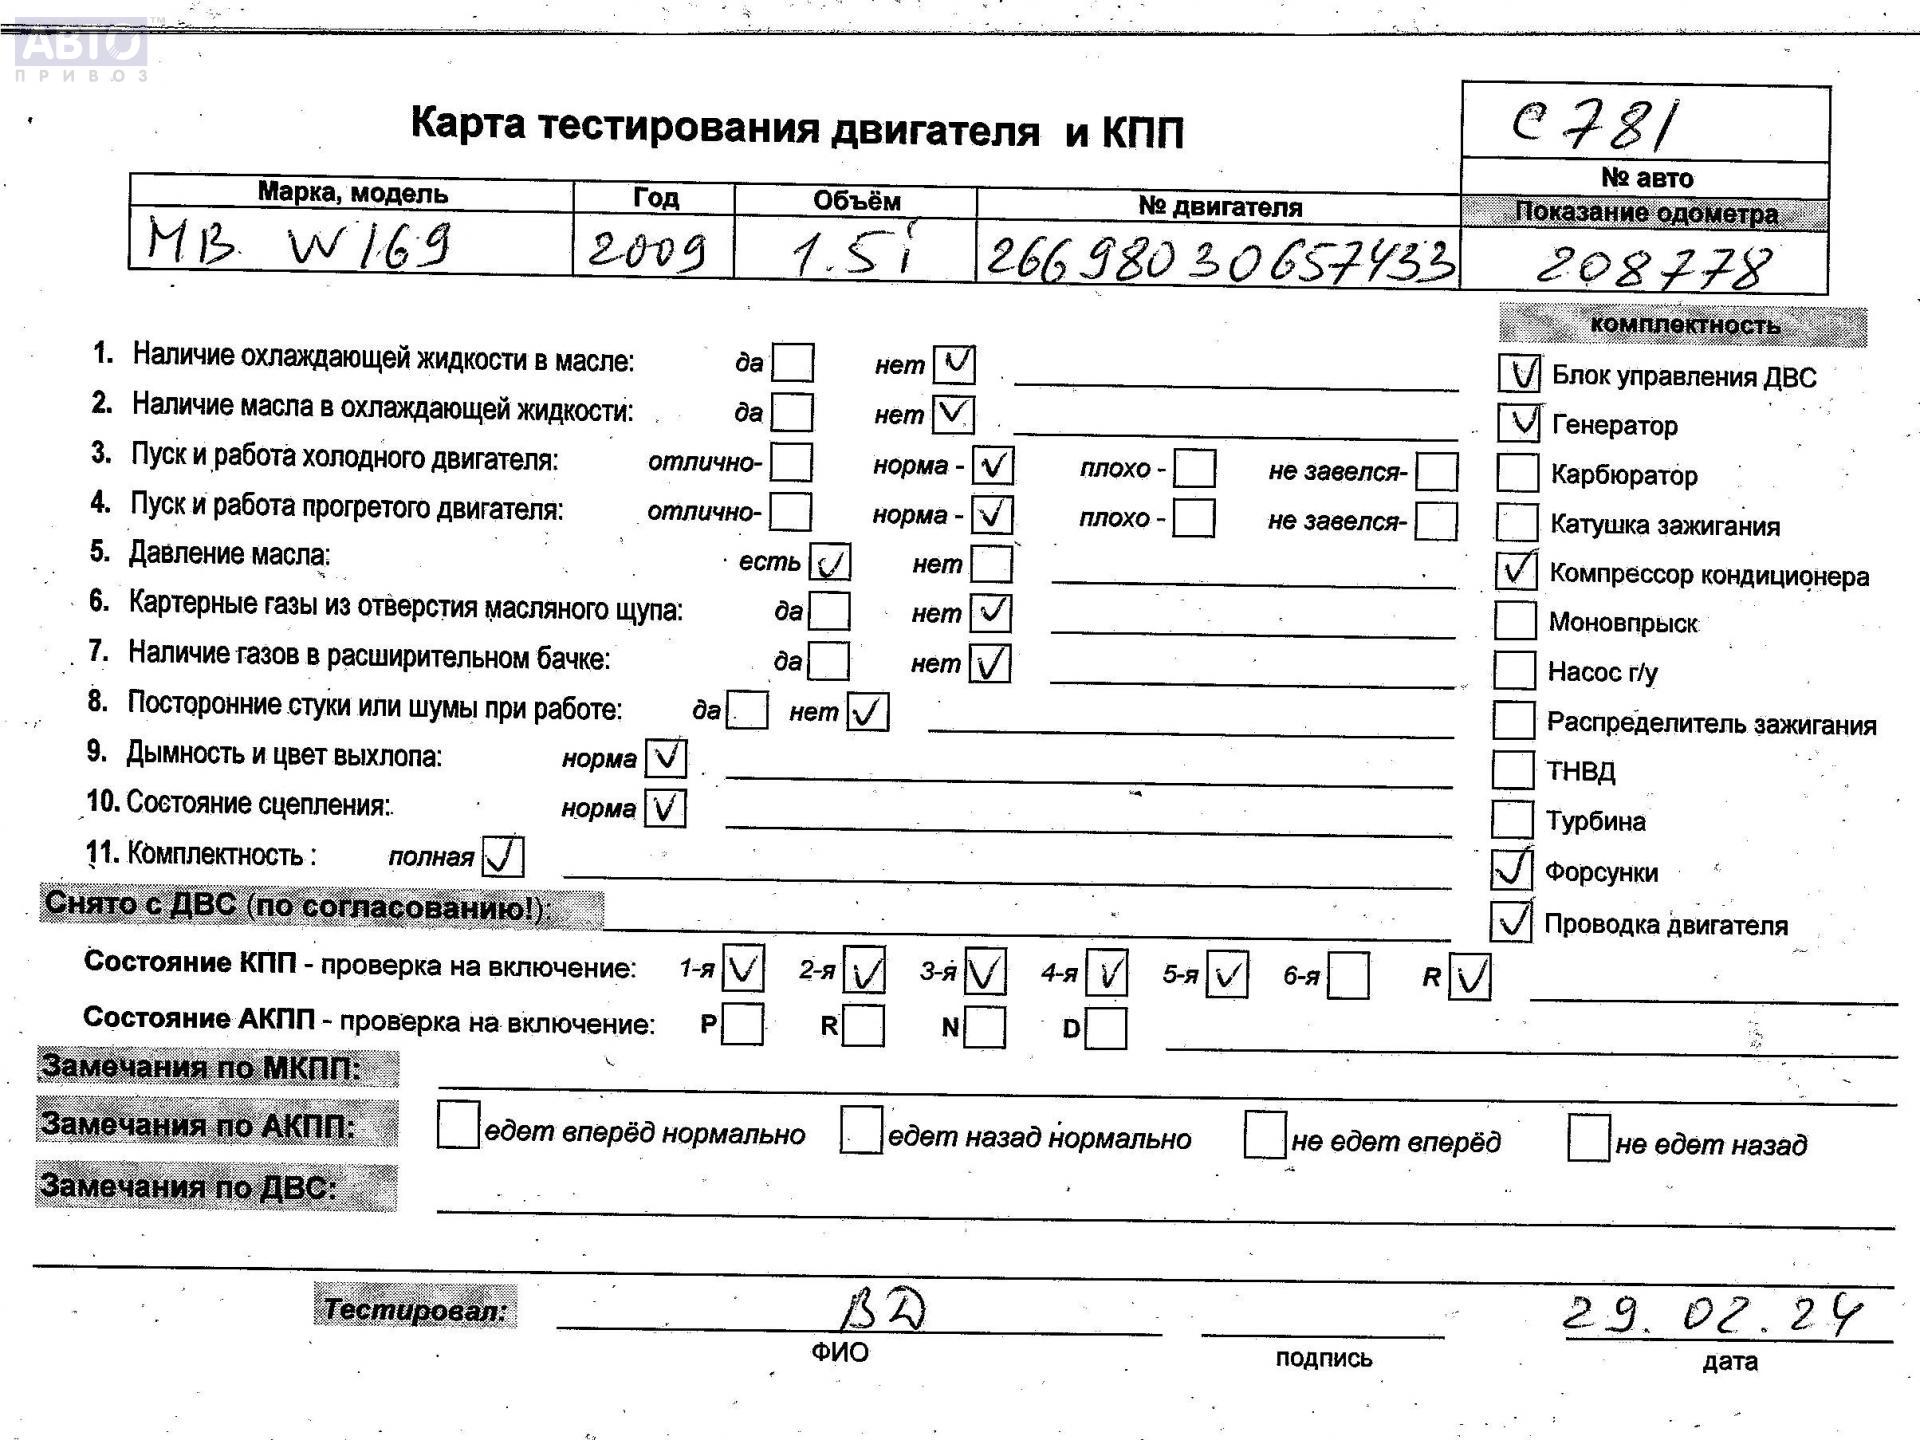 АВТО™
ПРИВОЗ
Карта тестирования двигателя и КПП
С781
№ авто
Марка, модель Год Объём № двигателя Показание одометра
MB. W169 2009 1.5i 26698030657433 208778
комплектность
1. Наличие охлаждающей жидкости в масле: да нет ✓
2. Наличие масла в охлаждающей жидкости: да нет ✓
3. Пуск и работа холодного двигателя: отлично- норма - ✓ плохо - не завелся-
4. Пуск и работа прогретого двигателя: отлично- норма - ✓ плохо - не завелся-
5. Давление масла: есть ✓ нет
6. Картерные газы из отверстия масляного щупа: да нет ✓
7. Наличие газов в расширительном бачке: да нет ✓
8. Посторонние стуки или шумы при работе: да нет ✓
9. Дымность и цвет выхлопа: норма ✓
10. Состояние сцепления: норма ✓
11. Комплектность : полная ✓
✓ Блок управления ДВС
✓ Генератор
Карбюратор
Катушка зажигания
✓ Компрессор кондиционера
Моновпрыск
Насос г/у
Распределитель зажигания
ТНВД
Турбина
✓ Форсунки
✓ Проводка двигателя
Снято с ДВС (по согласованию!):
Состояние КПП - проверка на включение: 1-я ✓ 2-я ✓ 3-я ✓ 4-я ✓ 5-я ✓ 6-я R ✓
Состояние АКПП - проверка на включение: P R N D
Замечания по МКПП:
Замечания по АКПП: едет вперёд нормально едет назад нормально не едет вперёд не едет назад
Замечания по ДВС:
Тестировал: ВД 29.02.24
ФИО подпись дата